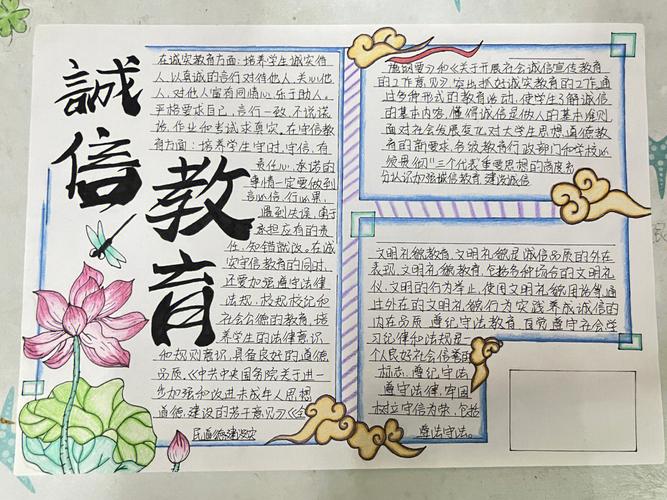 誠信
教育
在诚实教育方面：培养学生诚实待
人，以真诚的言行对待他人、关心他
人，对他人富有同情心，乐于助人。
严格要求自己，言行一致，不说谎
话，作业和考试求真实，在守信教
育方面：培养学生守时、守信、有
责任心，承诺的
事情一定要做到
言必信、行必果，
遇到失误，勇于
承担应有的责
任，知错就改。在诚
实守信教育的同时，
还要加强遵守法律
法规、校规校纪和
社会公德的教育，培
养学生的法律意识
和规则意识，具备良好的道德
品质。《中共中央国务院关于进一
步加强和改进未成年人思想
道德建设的若干意见》《公
民道德建设实
施纲要》和《关于开展社会诚信宣传教育
的工作意见》突出抓好诚实教育的工作，通
过多种形式的教育活动，使学生了解诚信
的基本内容，懂得诚信是做人的基本准则
面对社会发展变化对大学生思想道德教
育的新要求，各级教育行政部门和学校必
须展们"三个代表"重要思想的高度充
分认识加强诚信教育建设诚信
文明礼貌教育，文明礼貌是诚信品质的外在
表现，文明礼貌教育，包括多种场合的文明礼
仪，文明的行为举止，使用文明礼貌用语等通
过外在的文明礼貌行为实践养成诚信的
内在品质，遵纪守法教育，自觉遵守社会学
习纪律和法规是
个人良好社会信誉的
标志，遵纪守法
遵守法律，牢固
树立守信为荣，包括
遵法守法。